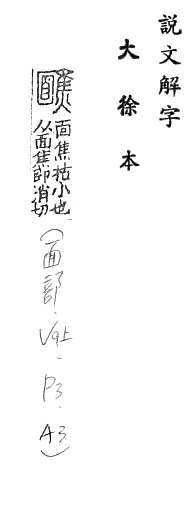 說文解字
大徐本
𩉌 面焦枯小也
从面焦即消切
(面部.V9上.P3.A3)